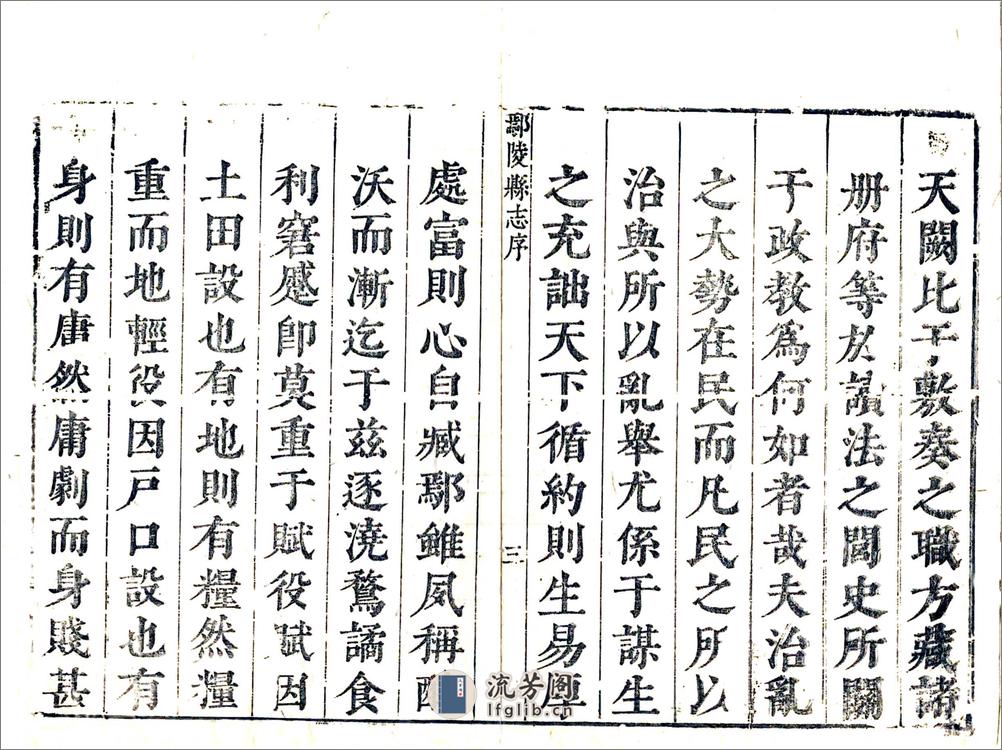 天闕比于敷奏之職方藏諸
册府等於讀法之閭史所關
于政教為何如者哉夫治亂
之大勢在民而凡民之所以
治與所以亂舉尤係于謀生
之充詘天下循約則生易厚
鄢陵縣志序
三
處富則心自臧鄢雖夙稱醇
沃而漸迄于茲逐澆鶩譎食
利窘蹙卽莫重于賦役賦因
土田設也有地則有糧然糧
重而地輕役因戶口設也有
身則有庸然庸劇而身賤甚
流芳阁
lfglib.cn